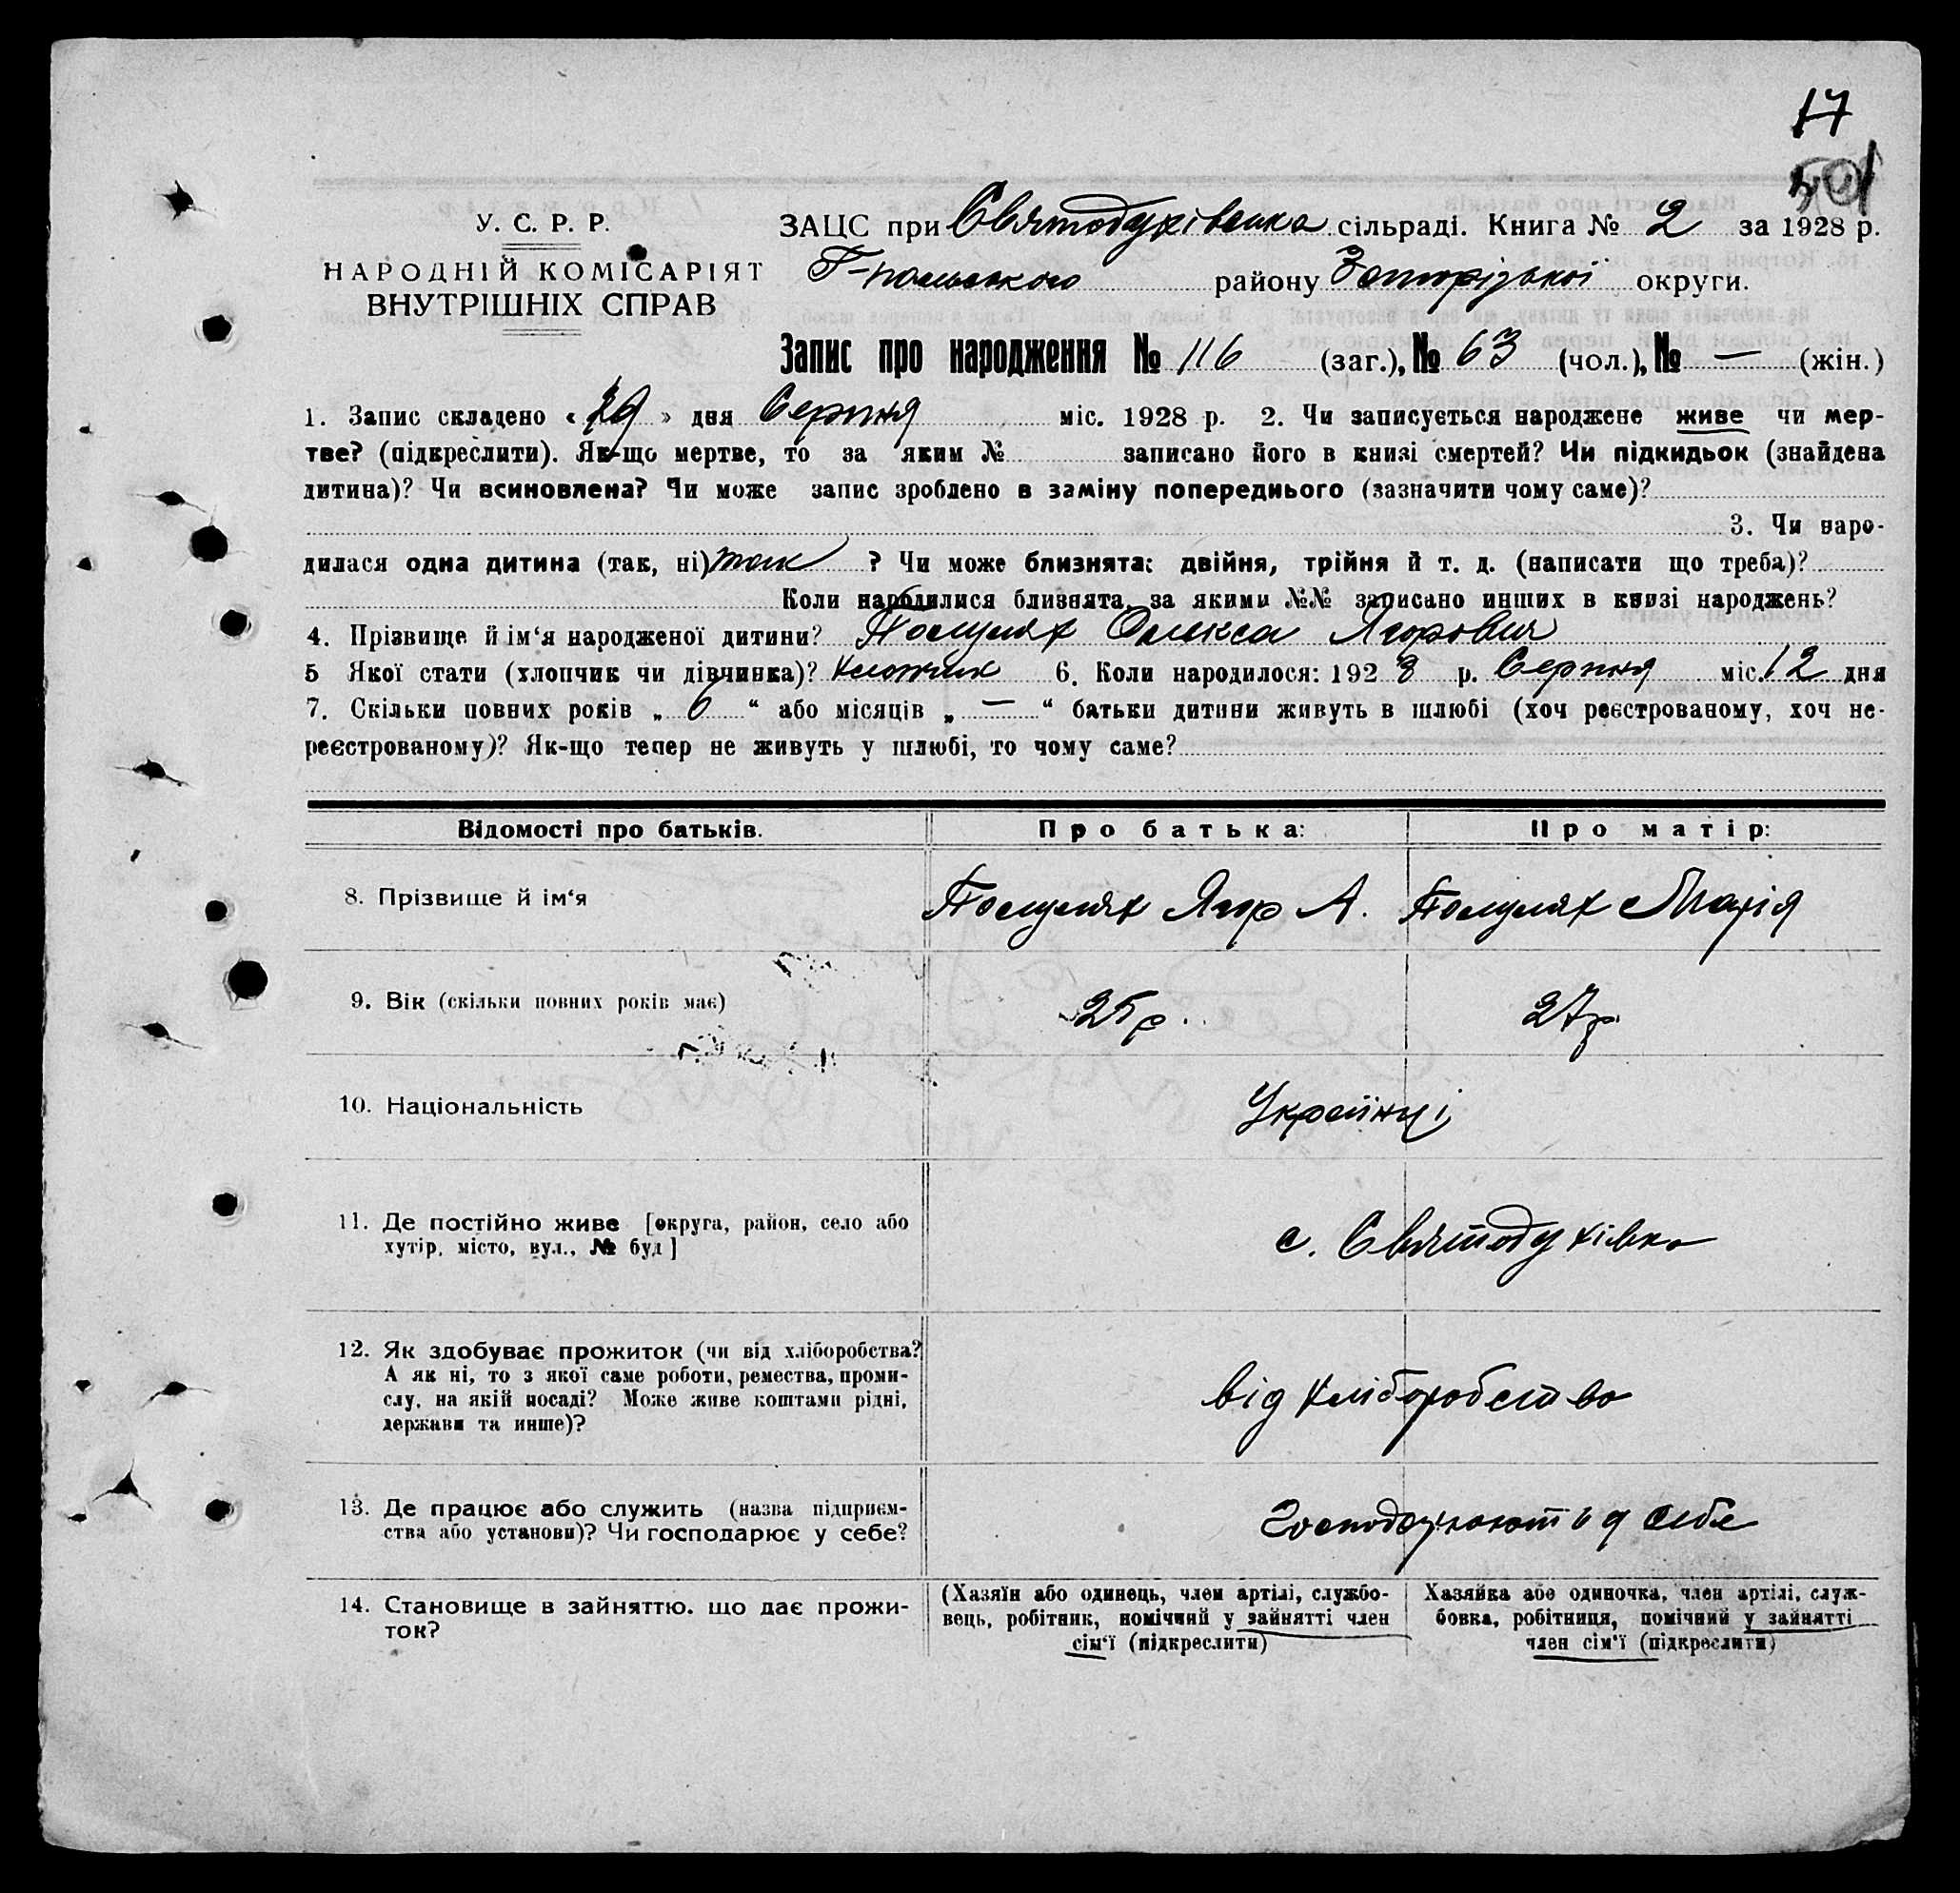 17
501
У. С. Р. Р.
НАРОДНІЙ КОМІСАРІЯТ
ВНУТРІШНІХ СПРАВ
ЗАЦС при Святодухівська сільраді. Книга № 2 за 1928 р.
Г-польського району Запорізької округи.
Запис про народження № 116 (заг.), № 63 (чол.), № — (жін.)
1. Запис складено « » дня Серпня міс. 1928 р. 2. Чи записується народжене живе чи мер-
тве? (підкреслити). Як-що мертве, то за яким № записано його в книзі смертей? Чи підкидьок (знайдена
дитина)? Чи всиновлена? Чи може запис зроблено в заміну попереднього (зазначити чому саме)?
3. Чи наро-
дилася одна дитина (так, ні) так ? Чи може близнята: двійня, трійня й т. д. (написати що треба)?
Коли народилися близнята, за якими №№ записано инших в книзі народжень?
4. Прізвище й ім'я народженої дитини? Олекса Ягорович
5 Якої стати (хлопчик чи дівчинка)? хлопчик 6. Коли народилося: 1928 р. Серпня міс. 12 дня
7. Скільки повних років „ 6 “ або місяців „ — “ батьки дитини живуть в шлюбі (хоч реєстрованому, хоч не-
реєстрованому)? Як-що тепер не живуть у шлюбі, то чому саме?
Відомості про батьків. Про батька: Про матір:
8. Прізвище й ім'я Ягор А. Марія
9. Вік (скільки повних років має) 25 р. 27 р.
10. Національність Українці
11. Де постійно живе [округа, район, село або
хутір, місто, вул., № буд] с. Святодухівка
12. Як здобуває прожиток (чи від хліборобства?
А як ні, то з якої саме роботи, ремества, проми-
слу, на якій посаді? Може живе коштами рідні,
держави та инше)? від хліборобства
13. Де працює або служить (назва підприєм-
ства або установи)? Чи господарює у себе? Господарюють у себе
14. Становище в зайняттю. що дає прожи-
ток?
(Хазяїн або одинець, член артілі, службо-
вець, робітник, помічний у зайнятті член
сім'ї (підкреслити)
Хазяйка або одиночка, член артілі, служ-
бовка, робітниця, помічний у зайнятті
член сім'ї (підкреслити)